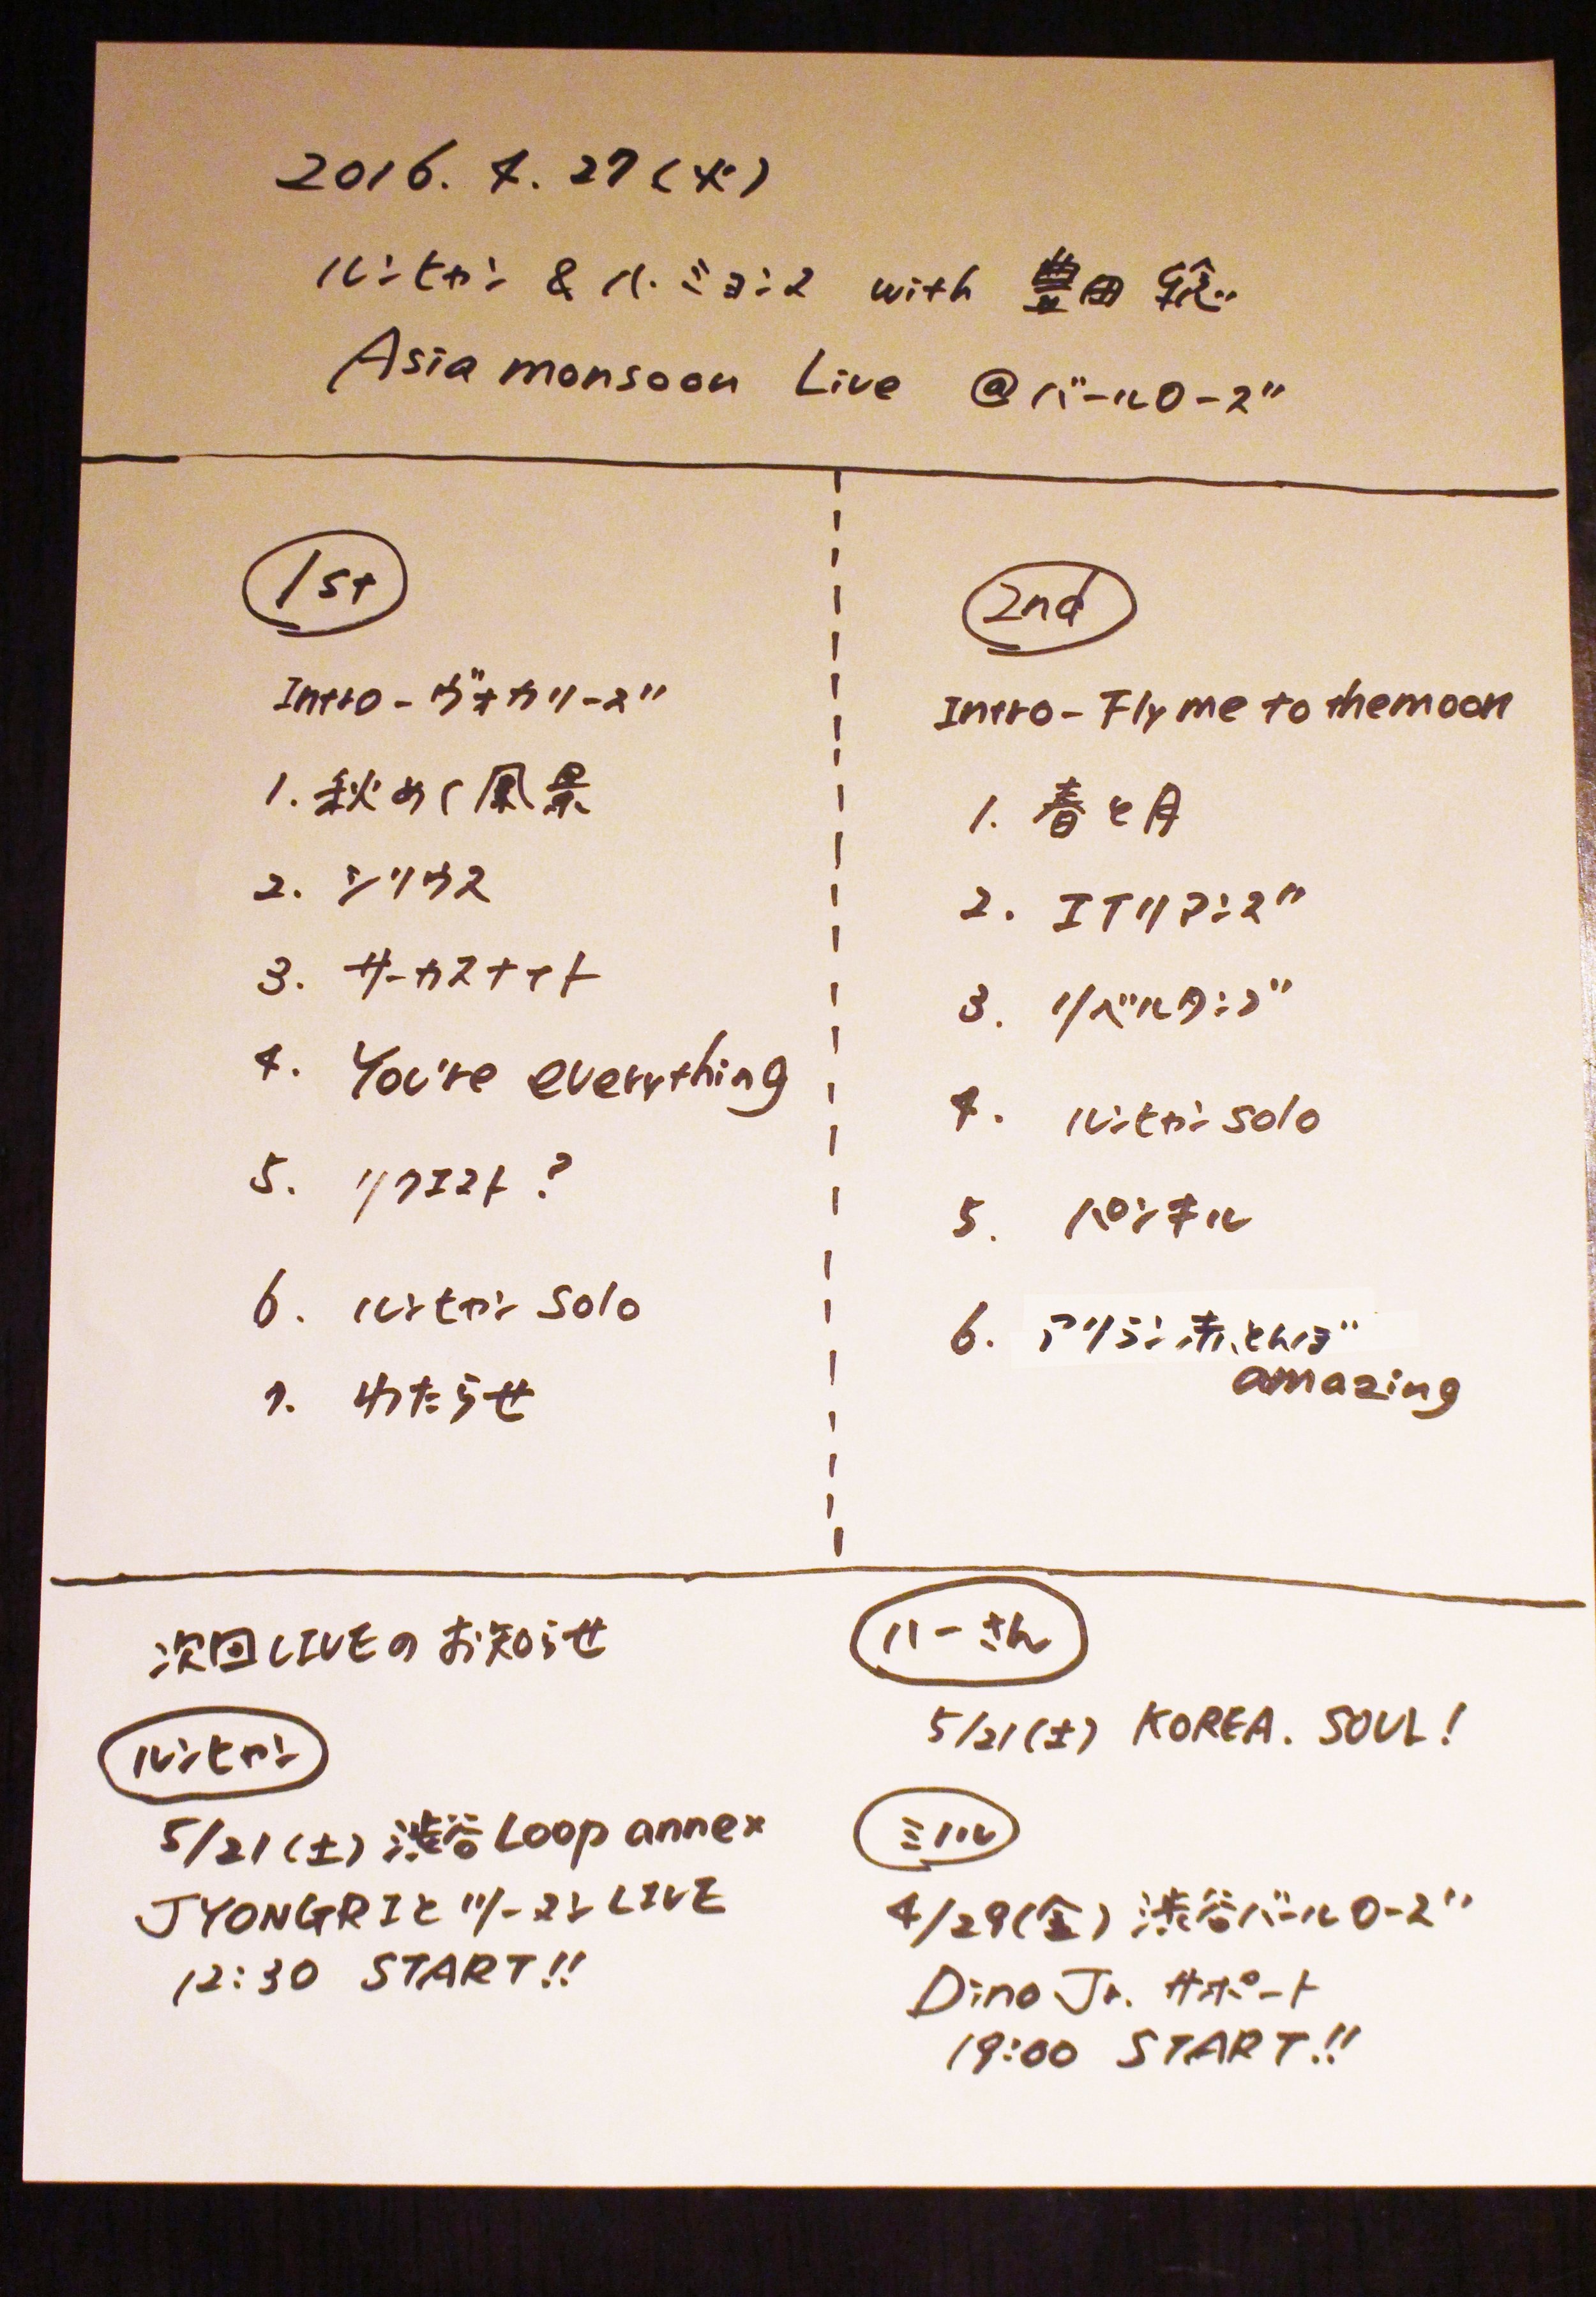 2016. 4. 27(水)
ルンヒャン & ハ・ミョンス with 豊田
Asia monsoon Live @バールローズ
1st
Intro-ヴォカリーズ
1. 秋めく風景
2. シリウス
3. サーカスナイト
4. You're everything
5. リクエスト?
6. ルンヒャン solo
7. わたらせ
2nd
Intro-Fly me to the moon
1. 春と月
2. エイリアンズ
3. リベルタンゴ
4. ルンヒャン solo
5. パンキル
6. アリラン 赤とんぼ
amazing
次回LIVEのお知らせ
ルンヒャン
5/21(土) 渋谷 Loop annex
JYONGRIとツーマンLIVE
12:30 START!!
ハーさん
5/21(土) KOREA. SOUL!
ミハル
4/29(金) 渋谷バールローズ
Dino Jr. サポート
19:00 START!!